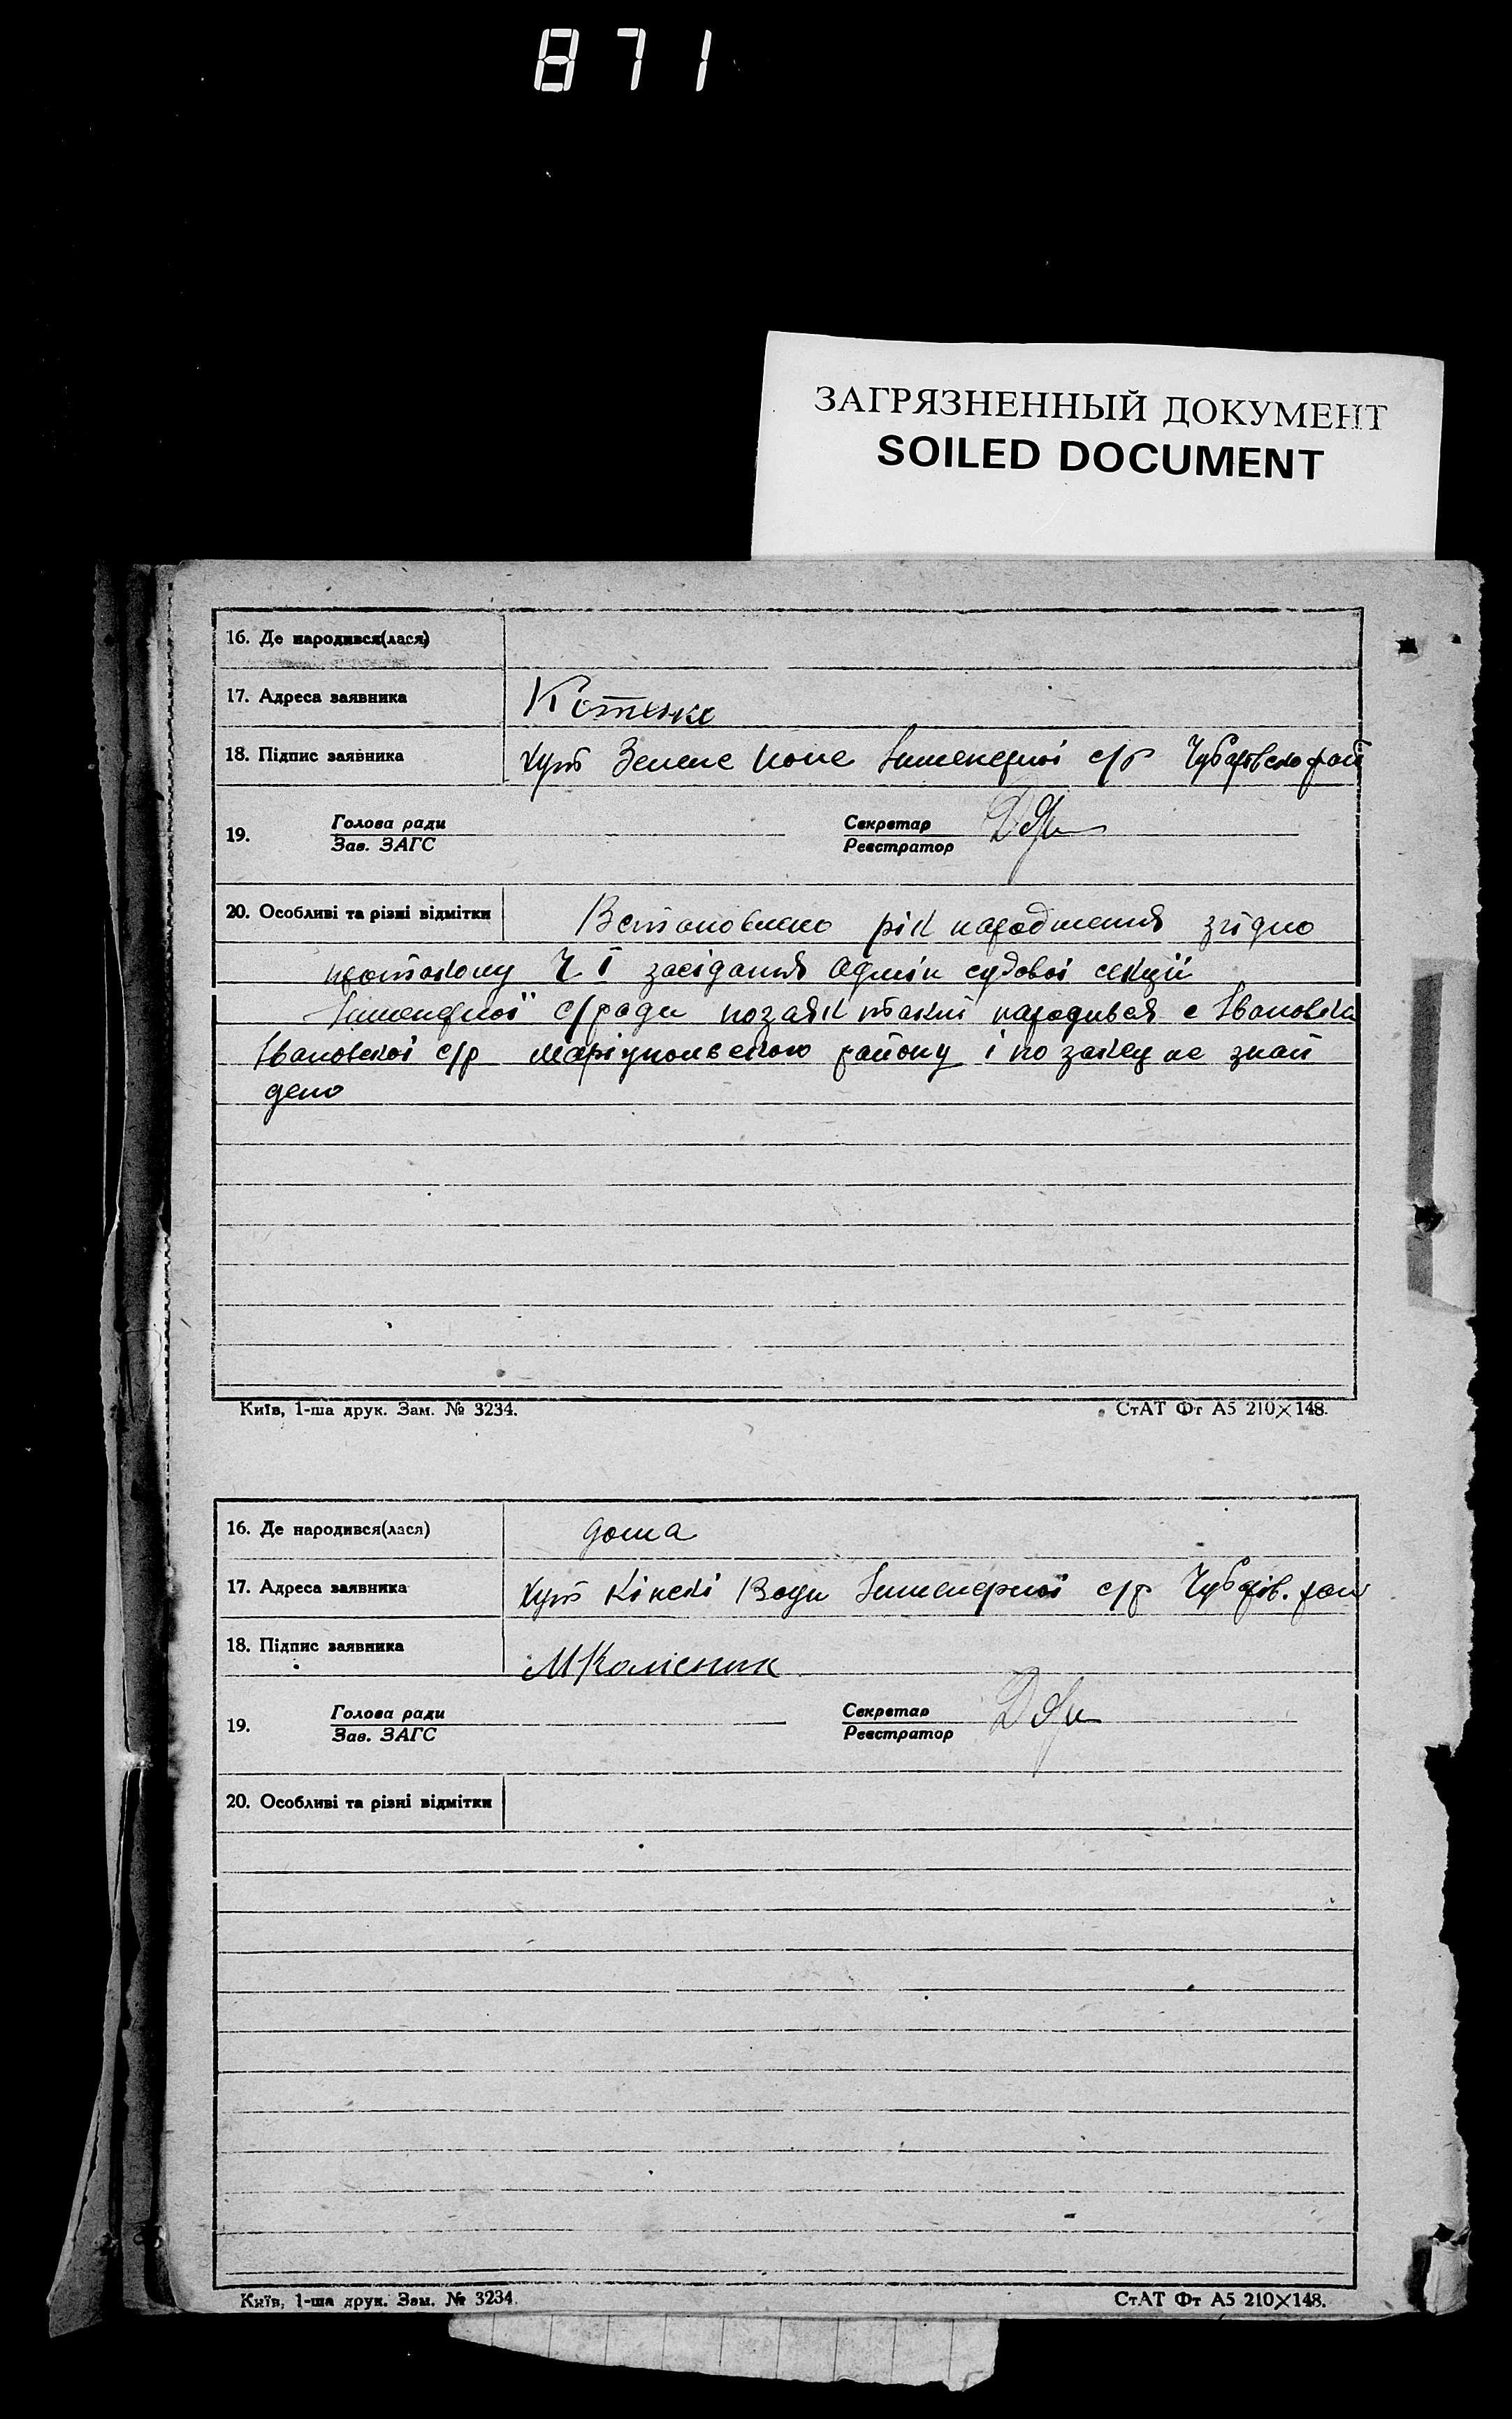 871
ЗАГРЯЗНЕННЫЙ ДОКУМЕНТ
SOILED DOCUMENT
16. Де народився(лася)
17. Адреса заявника Котенко
18. Підпис заявника хут Зелене поле Інженерної с/р
19. Голова ради Секретар
Зав. ЗАГС Реєстратор
20. Особливі та різні відмітки Встановлено рік народження згідно
протоколу Ч І засідання Адмін судової секції
Інженерної с/ради позаяк такий народився с Івановка
Івановської с/р Маріупольського району і по запису не знай
дено
Київ, 1-ша друк. Зам. № 3234. СтАТ Фт А5 210×148.
16. Де народився(лася) дома
17. Адреса заявника хут Кінскі Води Інженерної с/р Чубарів. рай
18. Підпис заявника М Колісник
19. Голова ради Секретар
Зав. ЗАГС Реєстратор
20. Особливі та різні відмітки
Київ, 1-ша друк. Зам. № 3234. СтАТ Фт А5 210×148.